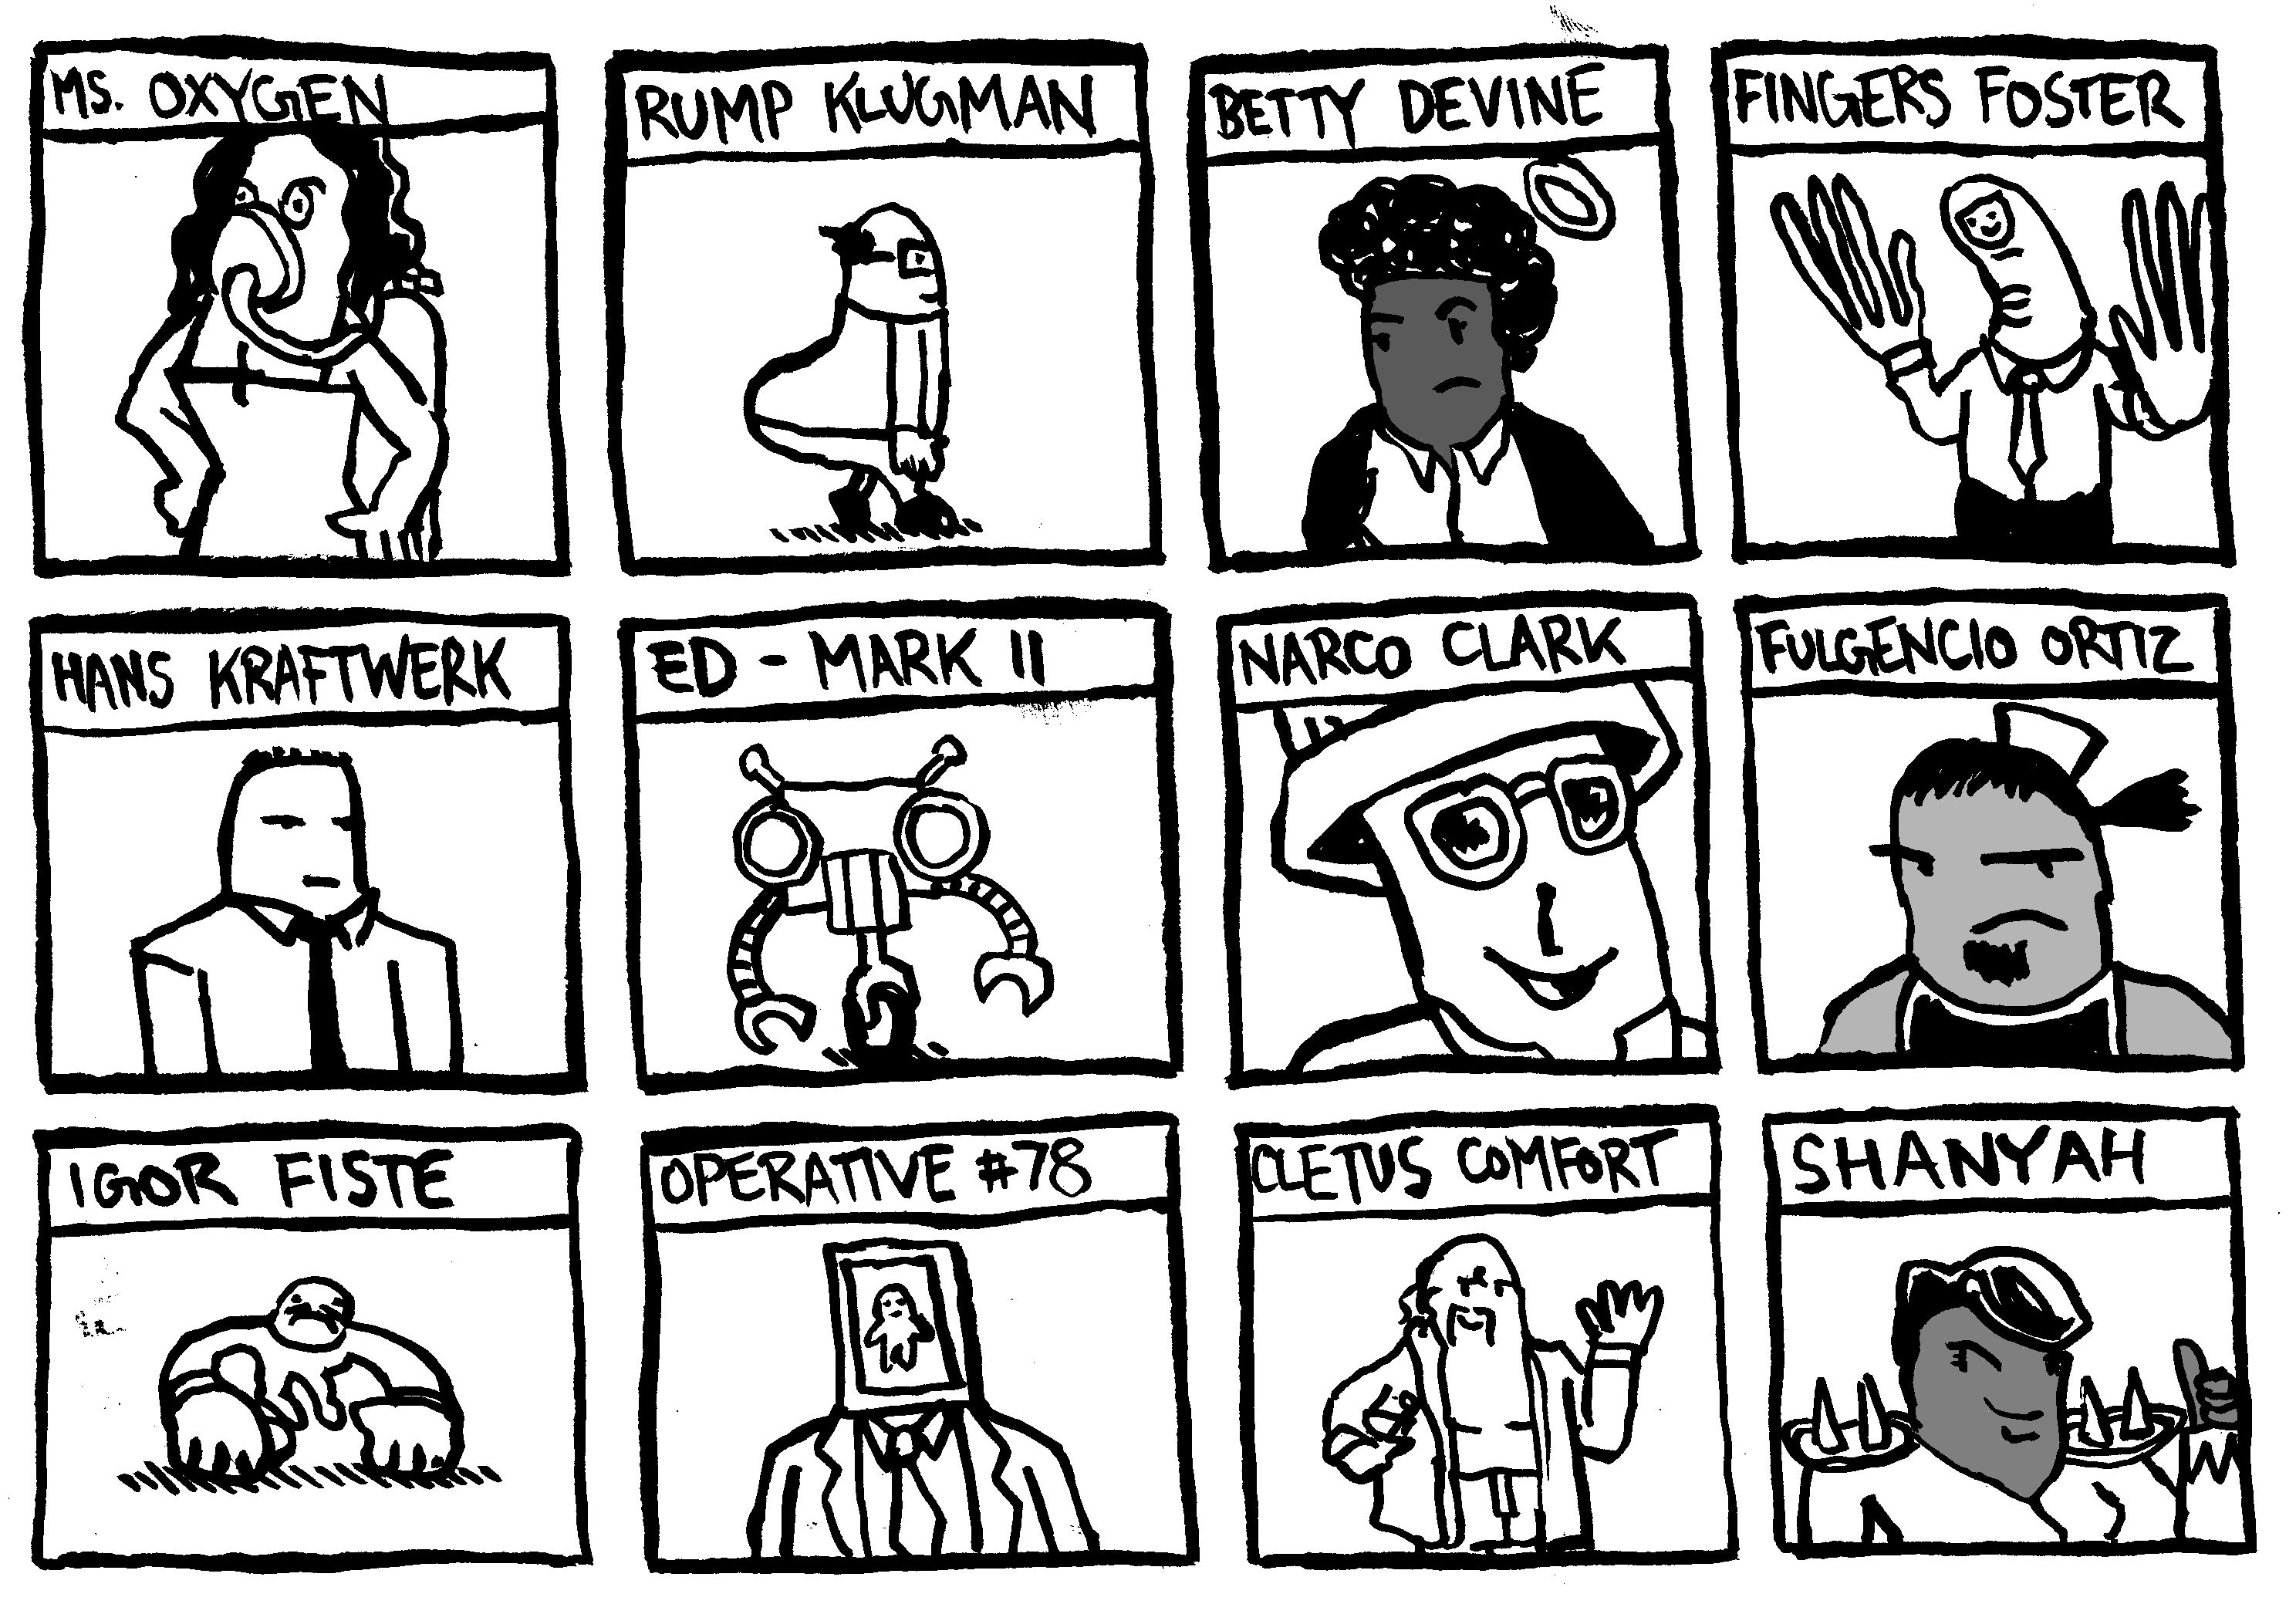 MS. OXYGEN
RUMP KLUGMAN
BETTY DEVINE
FINGERS FOSTER
HANS KRAFTWERK
ED - MARK II
NARCO CLARK
FULGENCIO ORTIZ
IGOR FISTE
OPERATIVE #78
CLETUS COMFORT
SHANYAH